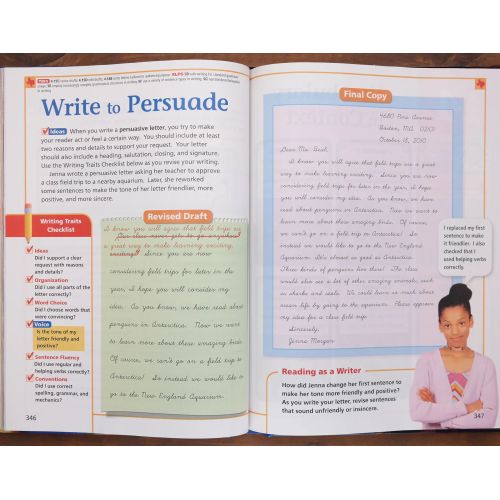 Write to Persuade
Ideas When you write a persuasive letter, you try to make
your reader act or feel a certain way. You should include at least
two reasons and details to support your request. Your letter
should also include a heading, salutation, closing, and signature.
Use the Writing Traits Checklist below as you revise your writing.
Jenna wrote a persuasive letter asking her teacher to approve
a class field trip to a nearby aquarium. Later, she reworked
some sentences to make the tone of her letter friendlier, more
positive, and more sincere.
Writing Traits
Checklist
Ideas
Did I support a clear
request with reasons
and details?
Organization
Did I use all parts of the
letter correctly?
Word Choice
Did I choose words that
were convincing?
Voice
Is the tone of my
letter friendly and
positive?
Sentence Fluency
Did I use regular and
helping verbs correctly?
Conventions
Did I use correct
spelling, grammar, and
mechanics?
346
Revised Draft
I know you will agree that field trips are
Our class never gets to go anywhere!
a great way to make learning exciting.
Since you are now
considering field trips for later in the
year, it hope you will consider my
idea. As you know, we have read about
penguins in Antarctica. Now we want
to learn more about these amazing birds.
Of course, we can't go on a field trip to
Antarctica! So instead we would like to
go to the New England Aquarium.
Final Copy
4680 Pine Avenue
Boston, MA 02101
October 18, 2010
Dear Ms. Beal,
I know you will agree that field trips are a great
way to make learning exciting. Since you are now
considering field trips for later in the year, it hope
you will consider my idea. As you know, we have
read about penguins in Antarctica. Now we want to
learn more about these amazing birds. Of course,
we can't go on a field trip to Antarctica! So
instead we would like to go to the New England
Aquarium. It's almost as good as Antarctica.
Three kinds of penguins live there! The class
would also see a lot of other amazing animals, such
as sharks and seals. We could learn so much about
ocean life by going to the aquarium. Please approve
my idea for a class field trip.
Sincerely,
Jenna Morgan
I replaced my first
sentence to make
it friendlier. I also
checked that I
used helping verbs
correctly.
Reading as a Writer
How did Jenna change her first sentence to
make her tone more friendly and positive?
As you write your letter, revise sentences
that sound unfriendly or insincere.
347